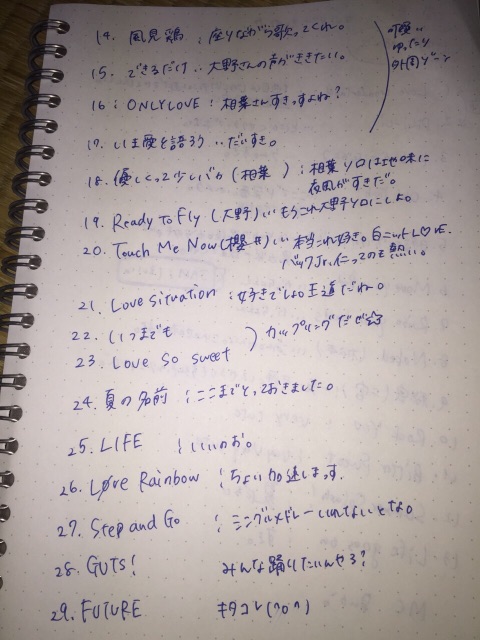 14. 風見鶏 : 座りながら歌ってくれ。
15. できるだけ : 大野さんの声がききたい。
16 : ONLY LOVE : 相葉さんすきっすよね?
17. いま愛を語ろう : だいすき。
18. 優しくって少しバカ (相葉) : 相葉ソロは
夜風がすきだ。
19. Ready to Fly (大野) : もうこれ大野ソロにしよ。
20. Touch Me Now (櫻井) : 本当これ好き。白ニット
バックJr.
21. Love situation : 好きでしょ王道だね。
22. いつまでも
23. Love so sweet
カップリングだぜ☆
24. 夏の名前 : ここまでとっておきました。
25. LIFE : いいのお。
26. Løve Rainbow : ちょい加速します。
27. Step and Go : シングルメドレーいれてないとな。
28. GUTS! みんな踊りたいんやろ?
29. FUTURE キタコレ(^o^)